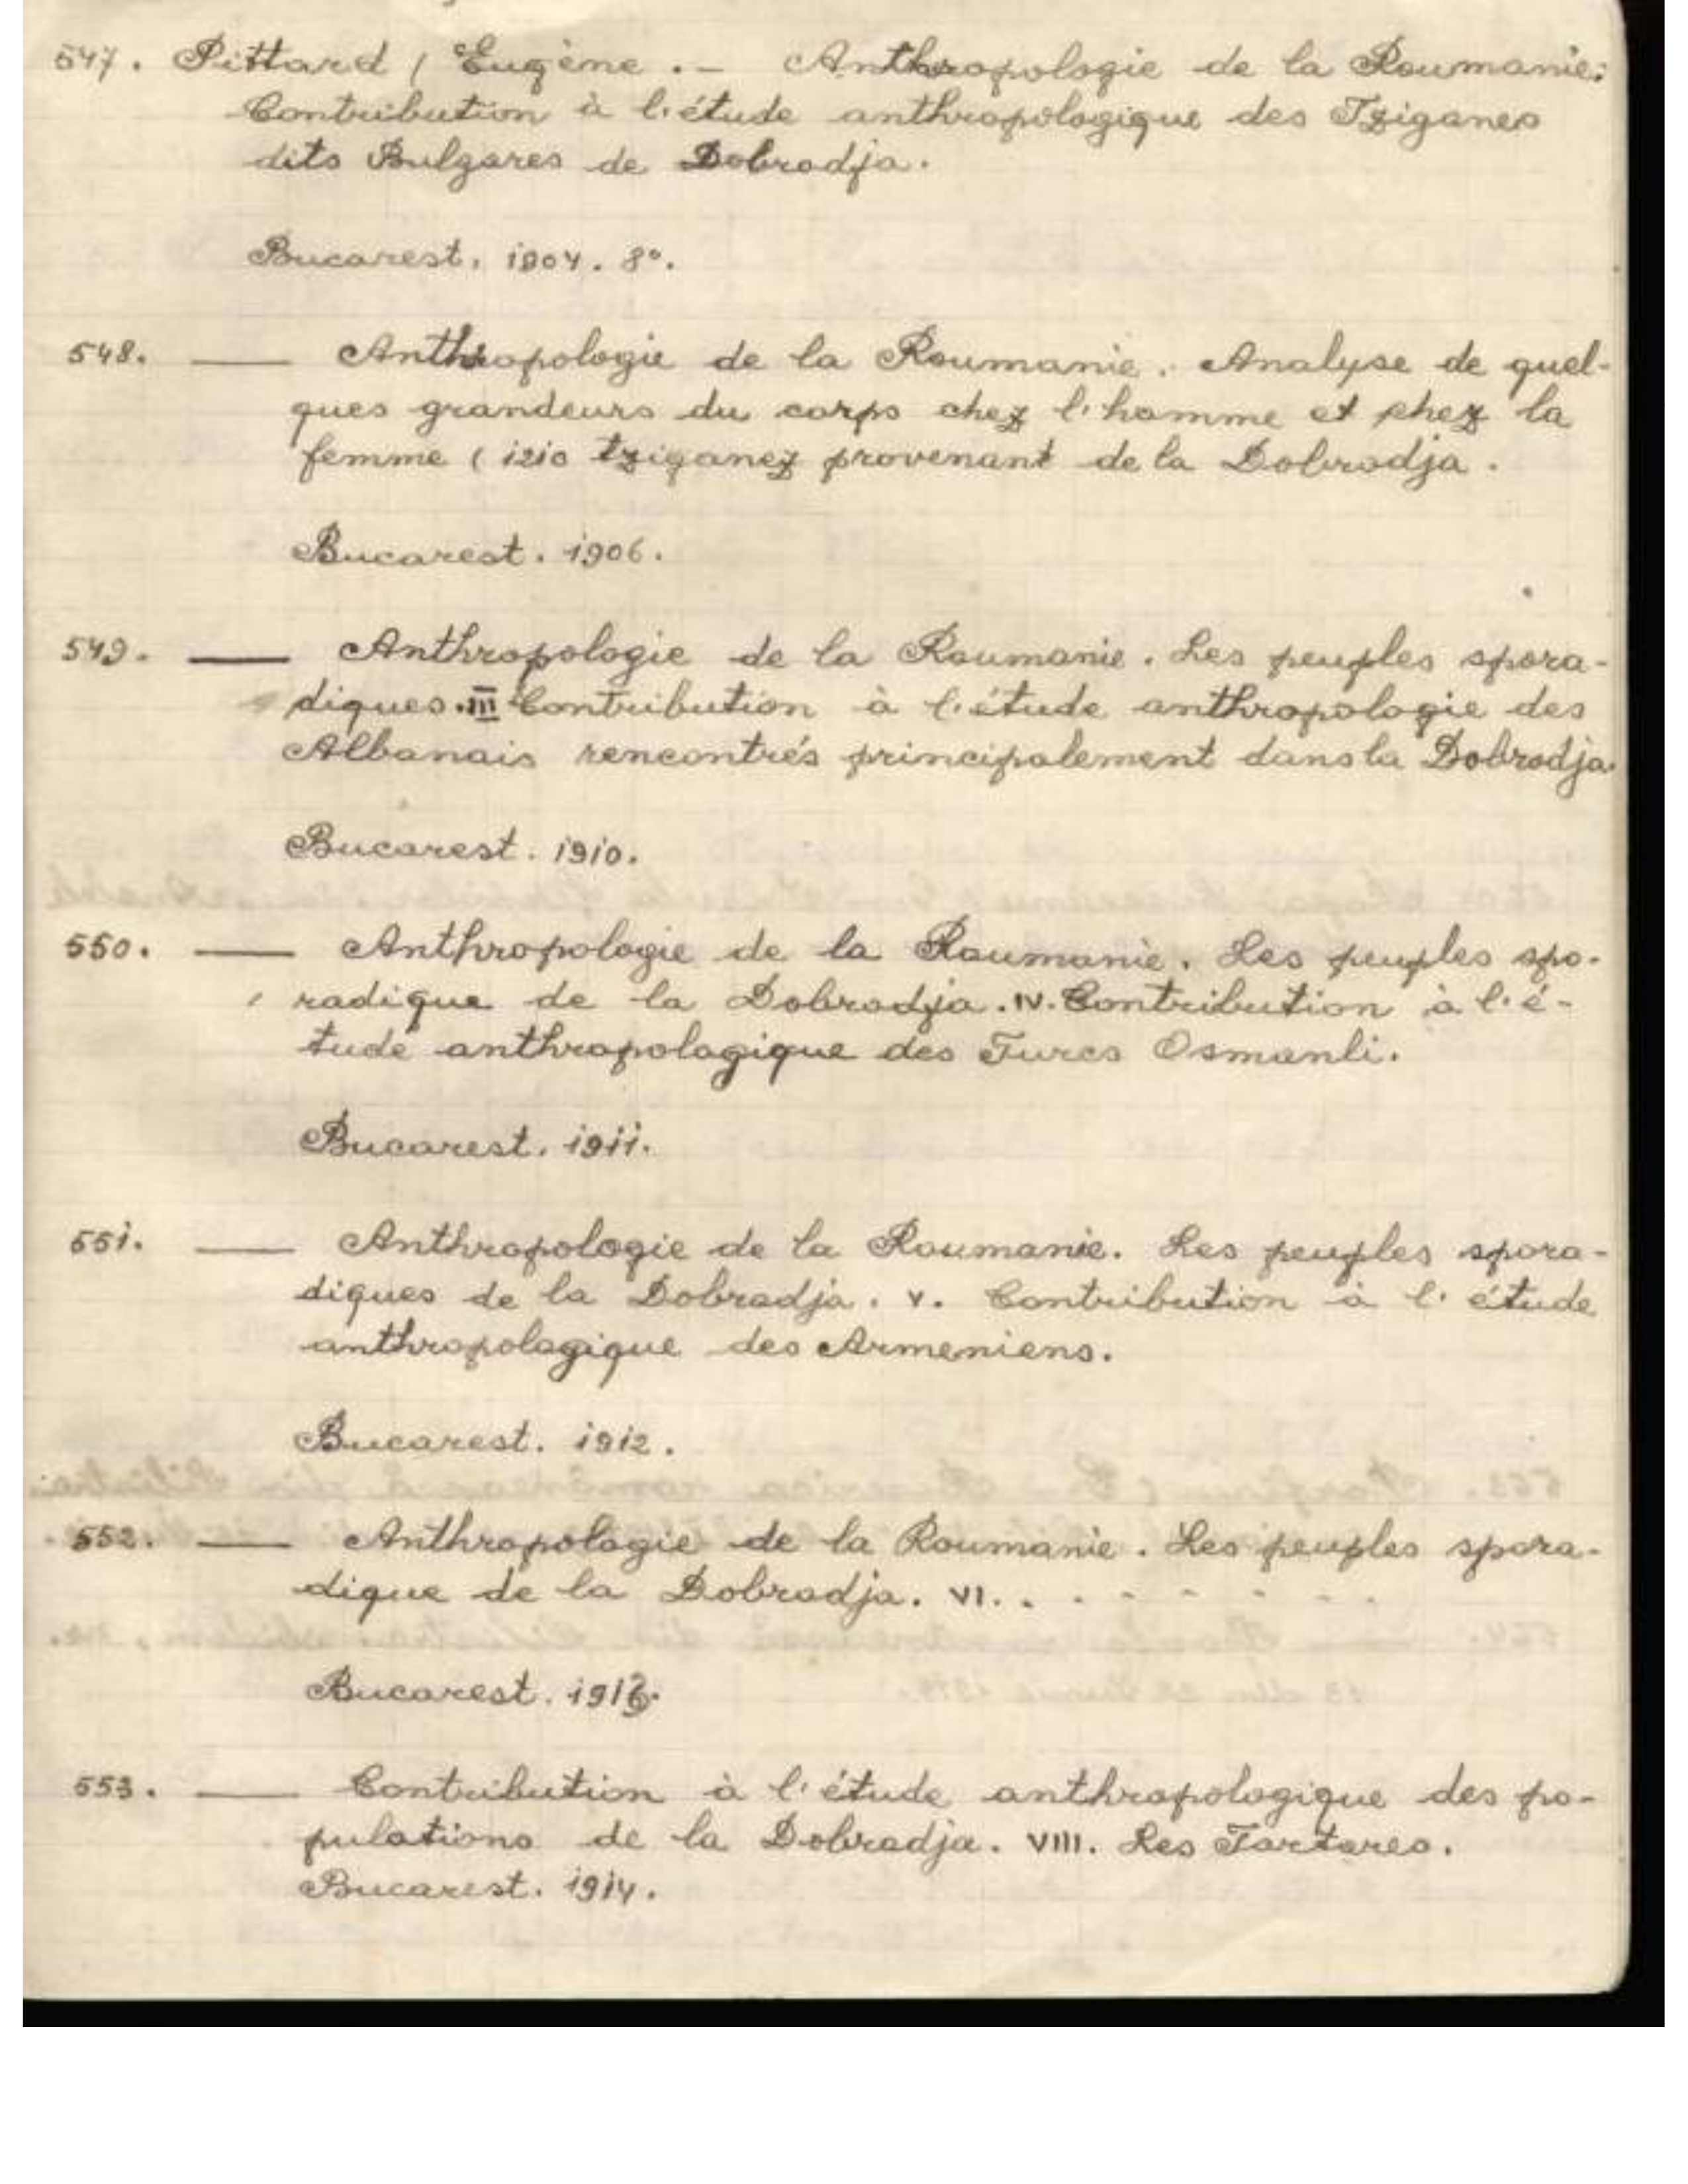 547. Pittard / Eugène. — Anthropologie de la Roumanie:
Contribution à l'étude anthropologique des Tziganes
dits Bulgares de Dobrodja.
Bucarest. 1904. 8°.
548. — Anthropologie de la Roumanie. Analyse de quel-
ques grandeurs du corps chez l'homme et chez la
femme ( 1210 tziganez provenant de la Dobrodja.
Bucarest. 1906.
549. — Anthropologie de la Roumanie. Les peuples spora-
diques. III Contribution à l'étude anthropologie des
Albanais rencontrés principalement dans la Dobrodja.
Bucarest. 1910.
550. — Anthropologie de la Roumanie. Les peuples spo-
radique de la Dobrodja. IV. Contribution à l'é-
tude anthropologique des Turcs Osmanli.
Bucarest. 1911.
551. — Anthropologie de la Roumanie. Les peuples spora-
diques de la Dobrodja. V. Contribution à l'étude
anthropologique des Armeniens.
Bucarest. 1912.
552. — Anthropologie de la Roumanie. Les peuples spora-
dique de la Dobrodja. VI. . . . . . . .
Bucarest.
553. — Contribution à l'étude anthropologique des po-
pulations de la Dobrodja. VIII. Les Tartares.
Bucarest. 1914.